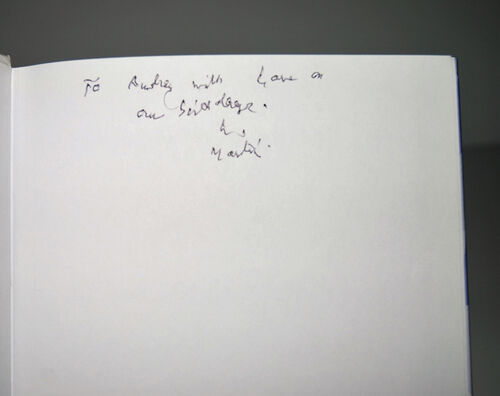 To Audrey with Love on
our Birthdays.
Martin